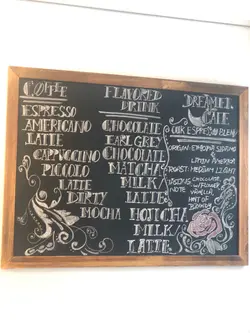 COFFEE
ESPRESSO
AMERICANO
LATTE
CAPPUCCINO
PICCOLO
LATTE
DIRTY
MOCHA
FLAVORED
DRINK
CHOCOLATE
EARL GREY
CHOCOLATE
MATCHA
MILK
LATTE
HOJICHA
MILK
LATTE
DREAMER
CAFE
OUR ESPRESSO BLEND
ORIGIN: ETHIOPIA SIDAMO
LATIN AMERICA
ROAST: MEDIUM LIGHT
TASTING
NOTE
CHOCOLATE,
FLOWER
VANILLA,
HINT OF